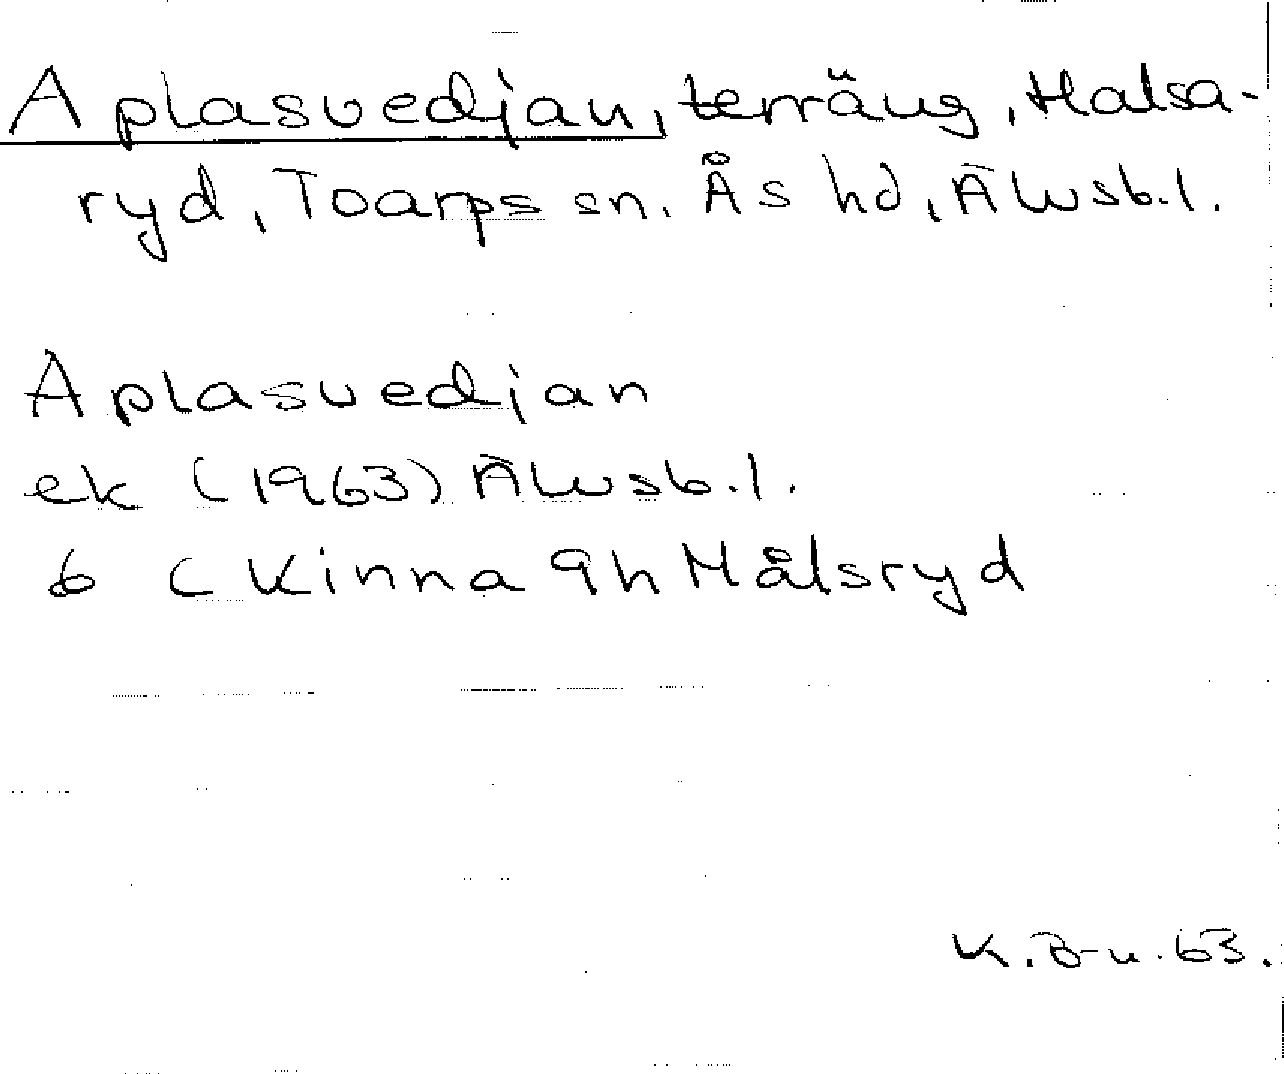 Aplasvedjan, terräng, Halsa-
ryd, Toarps sn. Ås hd, Älvsb.l.
Aplasvedjan
ek (1963) Älvsb.l.
6 ( Kinna 9h Målsryd
K.B-n. 63.